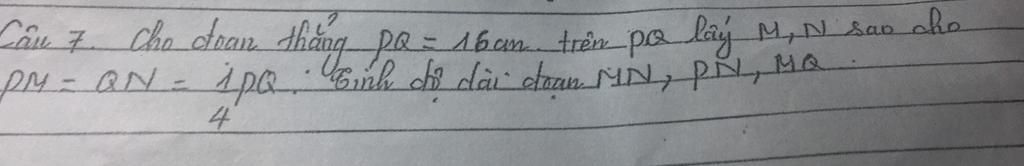 Câu 7. Cho đoạn thẳng PQ = 16cm. trên PQ lấy M, N sao cho
PM = QN = 1/4 PQ. Tính độ dài đoạn MN, PN, MQ.